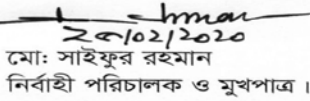 ২০/০২/২০২০
মো: সাইফুর রহমান
নির্বাহী পরিচালক ও মুখপাত্র।